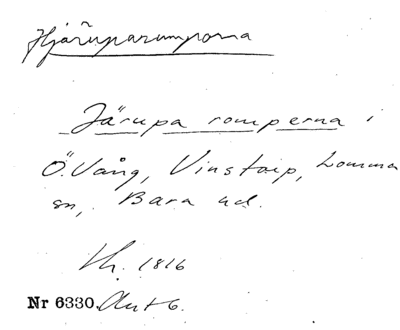 Hjäruparumporna
Järupa romperna i
Ö. Vång, Vinstorp, Lomma
sn, Bara hd.
1816
Nr 6330.